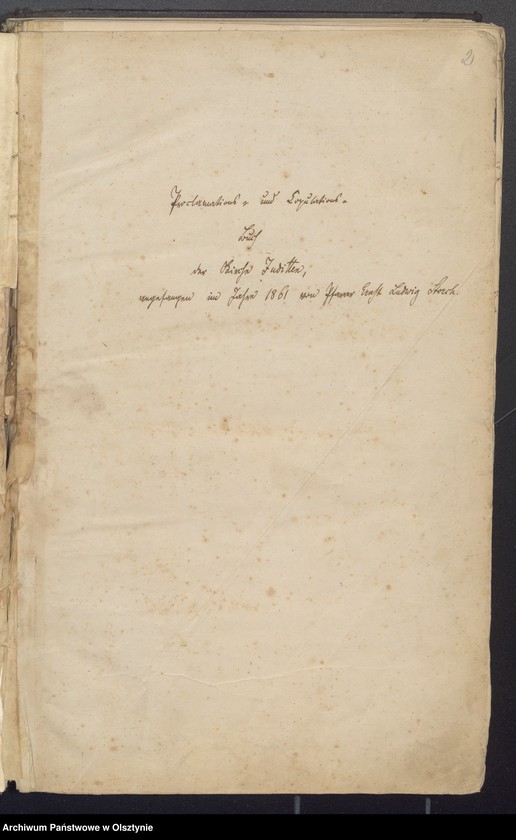 2
Proclamations- und Copulations-
Buch
der Kirche Juditten,
angefangen im Jahre 1861 von Pfarrer Ernst Ludwig Storch.
Archiwum Państwowe w Olsztynie